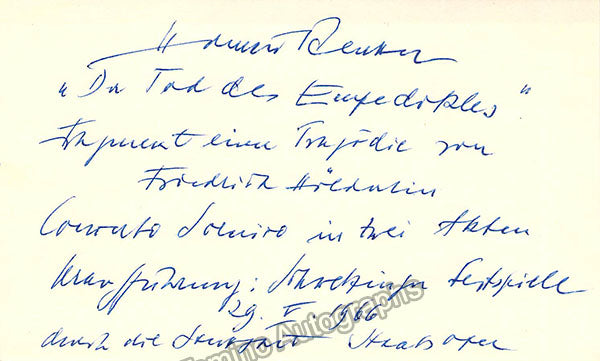 Hermann Reutter
"Der Tod des Empedokles"
Fragment einer Tragödie von
Friedrich Hölderlin
Concerto Scenico in zwei Akten
Uraufführung: Schwetzinger Festspiele
29. V. 1966
durch die Stuttgarter Staatsoper
Tamino Autographs